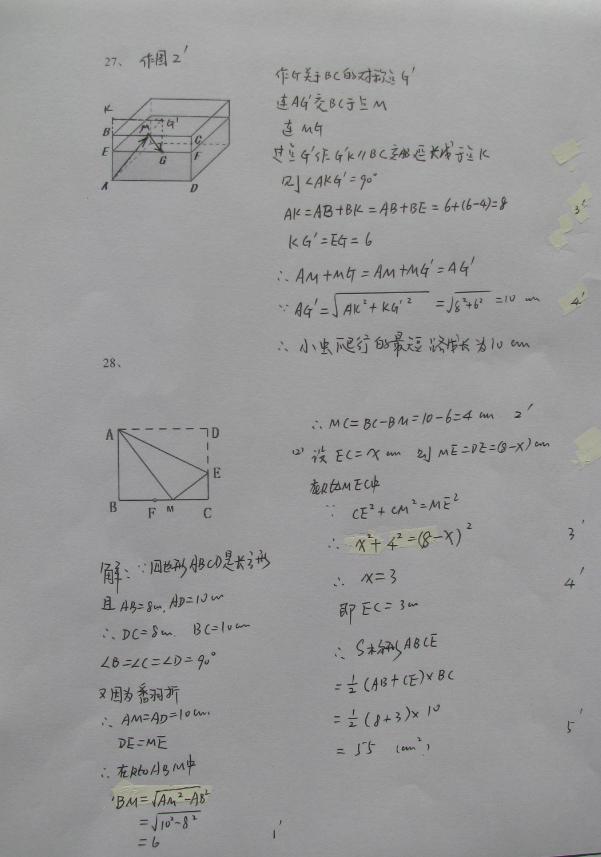 27、 作图2'
K
B
E
A
M
G'
G
C
F
D
作G关于BC的对称点G'
连AG'交BC于点M
连MG
过点G'作G'K∥BC交AB延长线于点K
则∠AKG'=90°
AK=AB+BK=AB+BE=6+(6-4)=8 3'
KG'=EG=6
∴ AM+MG=AM+MG'=AG'
∵ AG'=√AK²+KG'² =√8²+6² =10 cm 4'
∴ 小虫爬行的最短路线长为10cm
28、
A
D
E
B
F
M
C
解：∵四边形ABCD是长方形
且AB=8cm, AD=10cm
∴ DC=8cm BC=10cm
∠B=∠C=∠D=90°
又因为翻折
∴ AM=AD=10cm.
DE=ME
∴ 在Rt△ABM中
BM=√AM²-AB²
=√10²-8²
=6 1'
∴ MC=BC-BM=10-6=4cm 2'
(2) 设EC=xcm 则ME=DE=(8-x)cm
在Rt△MEC中
∵ CE²+CM²=ME²
∴ x²+4²=(8-x)² 3'
∴ x=3 4'
即EC=3cm
∴ S梯形ABCE
=½(AB+CE)×BC
=½(8+3)×10 5'
=55 (cm²)